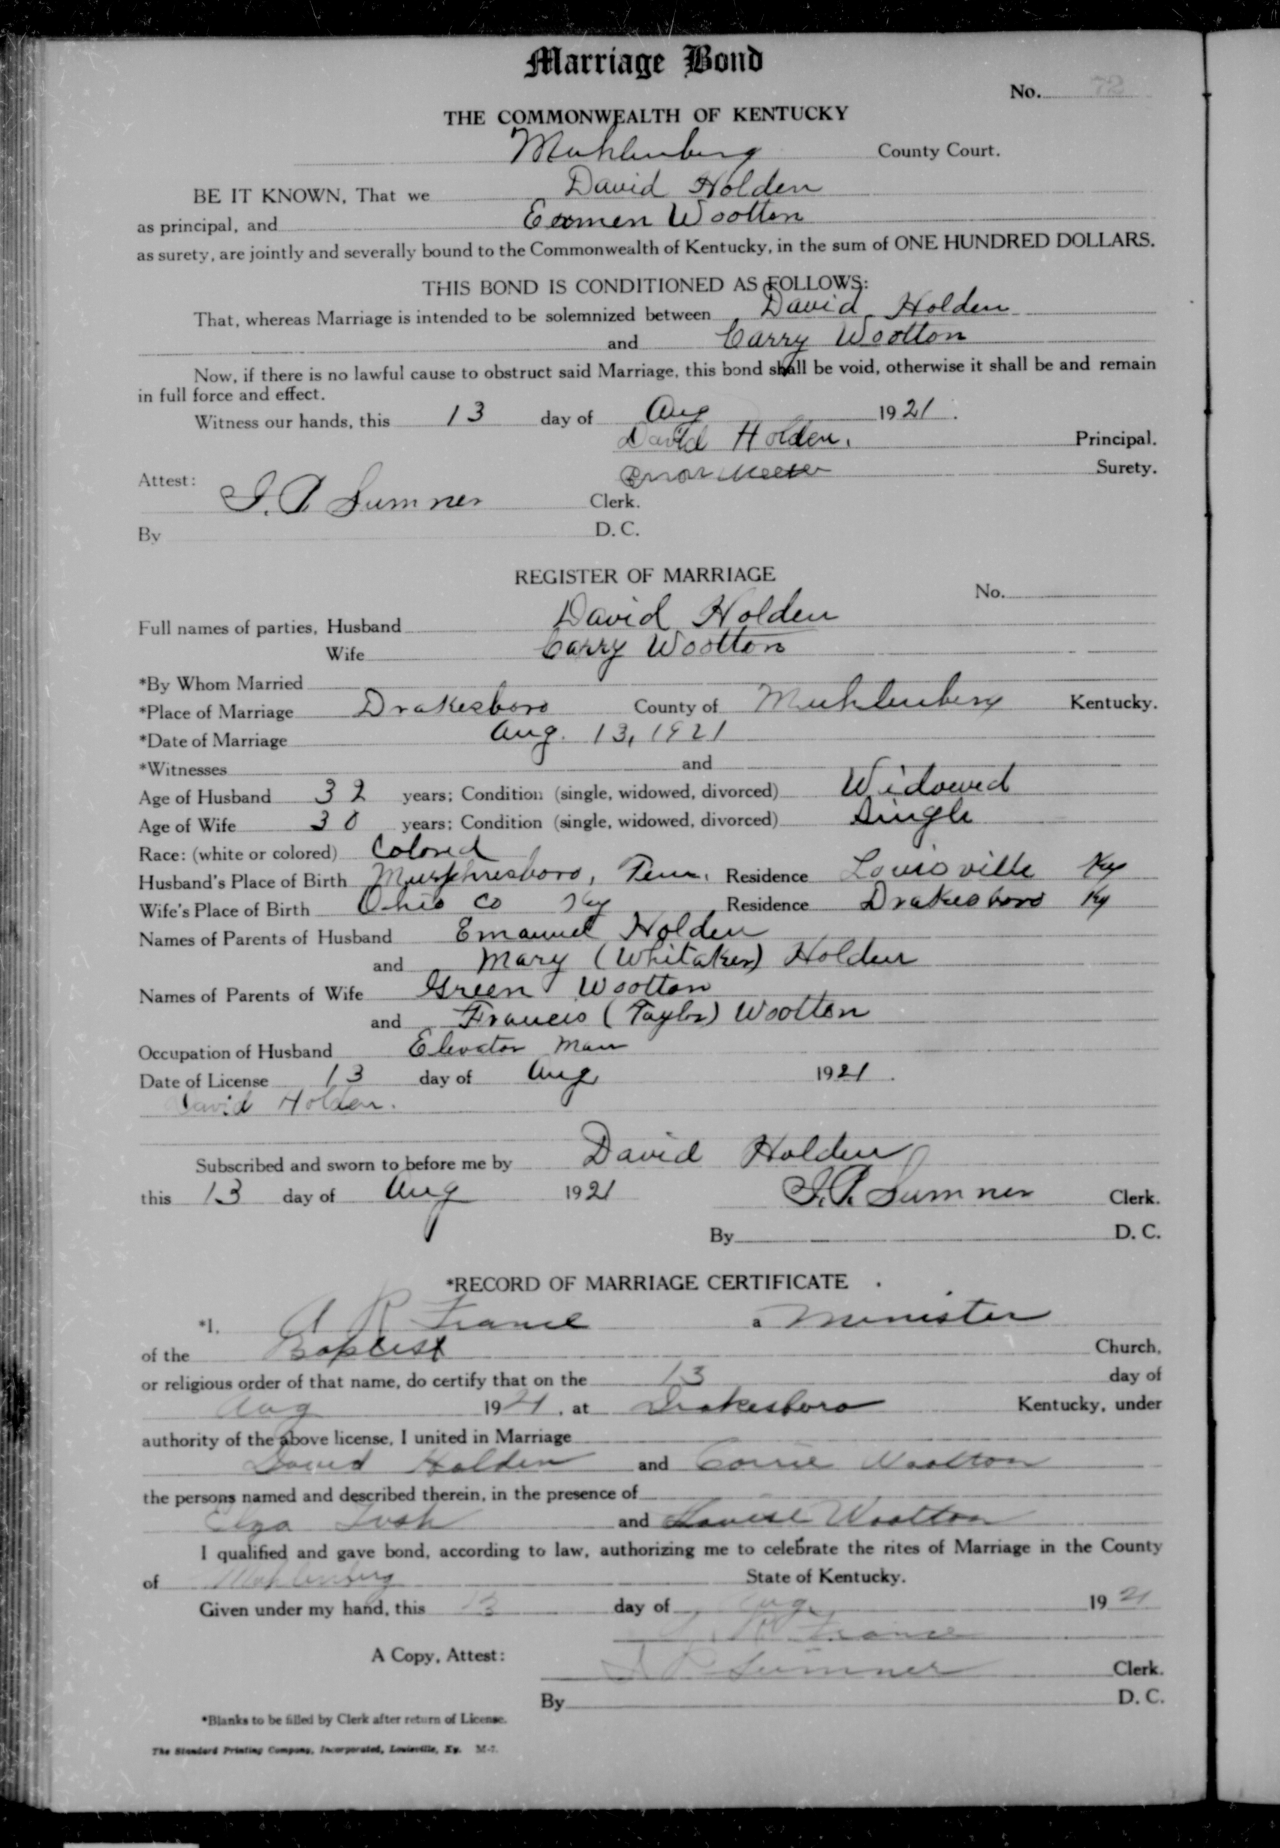 Marriage Bond
No. 72
THE COMMONWEALTH OF KENTUCKY
Muhlenberg County Court.
BE IT KNOWN, That we David Holden
as principal, and Wootton
as surety, are jointly and severally bound to the Commonwealth of Kentucky, in the sum of ONE HUNDRED DOLLARS.
THIS BOND IS CONDITIONED AS FOLLOWS:
That, whereas Marriage is intended to be solemnized between David Holden
and Carry Wootton
Now, if there is no lawful cause to obstruct said Marriage, this bond shall be void, otherwise it shall be and remain
in full force and effect.
Witness our hands, this 13 day of Aug 1921.
David Holden. Principal.
Surety.
Attest: J. P. Sumner Clerk.
By D. C.
REGISTER OF MARRIAGE
No.
Full names of parties, Husband David Holden
Wife Carry Wootton
*By Whom Married
*Place of Marriage Drakesboro County of Muhlenberg Kentucky.
*Date of Marriage Aug. 13, 1921
*Witnesses and
Age of Husband 32 years; Condition (single, widowed, divorced) Widowed
Age of Wife 30 years; Condition (single, widowed, divorced) Single
Race: (white or colored) Colored
Husband's Place of Birth Murphresboro, Tenn. Residence Louisville Ky
Wife's Place of Birth Ohio Co Ky Residence Drakesboro Ky
Names of Parents of Husband Emanuel Holden
and Mary (Whitaker) Holden
Names of Parents of Wife Green Wootton
and Francis (Taylor) Wootton
Occupation of Husband Elevator Man
Date of License 13 day of Aug 1921.
David Holden.
Subscribed and sworn to before me by David Holden
this 13 day of Aug 1921 J. P. Sumner Clerk.
By D. C.
*RECORD OF MARRIAGE CERTIFICATE
*I, A R France a Minister
of the Baptist Church,
or religious order of that name, do certify that on the 13 day of
Aug 1921, at Drakesboro Kentucky, under
authority of the above license, I united in Marriage
David Holden and Corrie Wootton
the persons named and described therein, in the presence of
and Louise Wootton
I qualified and gave bond, according to law, authorizing me to celebrate the rites of Marriage in the County
of Muhlenberg State of Kentucky.
Given under my hand, this 13 day of Aug 1921
A R France
A Copy, Attest: J P Sumner Clerk.
By D. C.
*Blanks to be filled by Clerk after return of License.
The Standard Printing Company, Incorporated, Louisville, Ky. M-7.